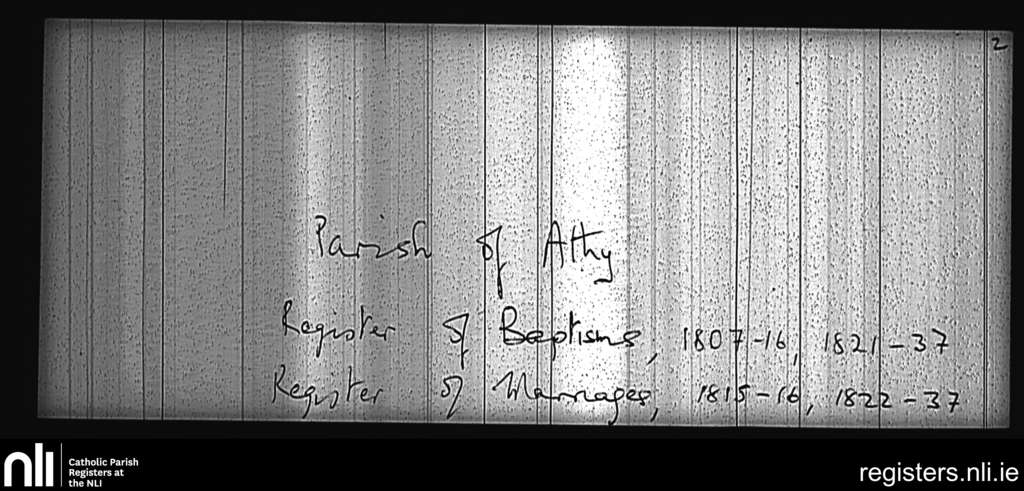 2
Parish of Athy
Register of Baptisms, 1807-16, 1821-37
Register of Marriages, 1815-16, 1822-37
nli
Catholic Parish
Registers at
the NLI
registers.nli.ie